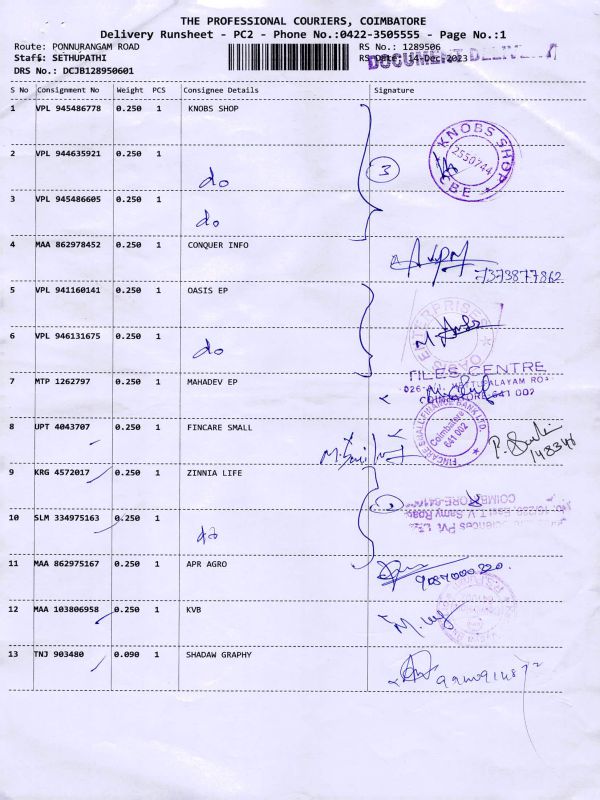 THE PROFESSIONAL COURIERS, COIMBATORE
Delivery Runsheet - PC2 - Phone No.:0422-3505555 - Page No.:1
Route: PONNURANGAM ROAD RS No.: 1289506
Staff: SETHUPATHI RS Date: 14-Dec-2023
DOCUMENT DELIVERY
DRS No.: DCJB128950601
S No Consignment No Weight PCS Consignee Details Signature
1 VPL 945486778 0.250 1 KNOBS SHOP
KNOBS SHOP
2550744
CBE
2 VPL 944635921 0.250 1
do
3
3 VPL 945486605 0.250 1
do
4 MAA 862978452 0.250 1 CONQUER INFO
7373877862
5 VPL 941160141 0.250 1 OASIS EP
ENTERPRISES
6 VPL 946131675 0.250 1
do
TILES CENTRE
7 MTP 1262797 0.250 1 MAHADEV EP
COIMBATORE 641 002
8 UPT 4043707 0.250 1 FINCARE SMALL
FINCARE SMALL FINANCE BANK LTD.
Coimbatore
641 002
148346
9 KRG 4572017 0.250 1 ZINNIA LIFE
10 SLM 334975163 0.250 1
do
2
11 MAA 862975167 0.250 1 APR AGRO
12 MAA 103806958 0.250 1 KVB
13 TNJ 903480 0.090 1 SHADAW GRAPHY